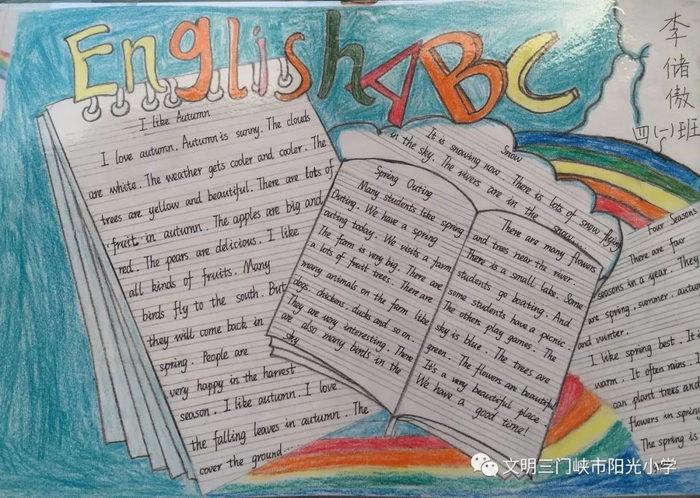 English ABC
李储傲
四(一)班
I like Autumn
I love autumn. Autumn is sunny. The clouds
are white. The weather gets cooler and cooler. The
trees are yellow and beautiful. There are lots of
fruit in autumn. The apples are big and
red. The pears are delicious. I like
all kinds of fruits. Many
birds fly to the south. But
they will come back in
spring. People are
very happy in the harvest
season. I like autumn. I love
the falling leaves in autumn. The
cover the ground
Snow
It is snowing now. There is lots of snow flying
in the sky. The rivers are in the snow
Spring Outing
Many students like spring
Outing. We have a spring
outing today. We visit a farm
The farm is very big. There are
a lots of fruit trees. There are
many animals on the farm like
dogs, chickens, ducks and so on.
They are very interesting. There
are also many birds in the
sky
There are many flowers
and trees near the river.
There is a small lake. Some
students go boating. And
some students have a picnic
The other play games. The
sky is blue. The trees are
green. The flowers are beautiful
It's a very beautiful place
We have a good time!
Four Seasons
There are four
seasons in a year. They
are spring, summer, autumn
and winter.
I like spring best. It
warm. It often rains. I
can plant trees and
flowers in spring
The spring is
文明三门峡市阳光小学